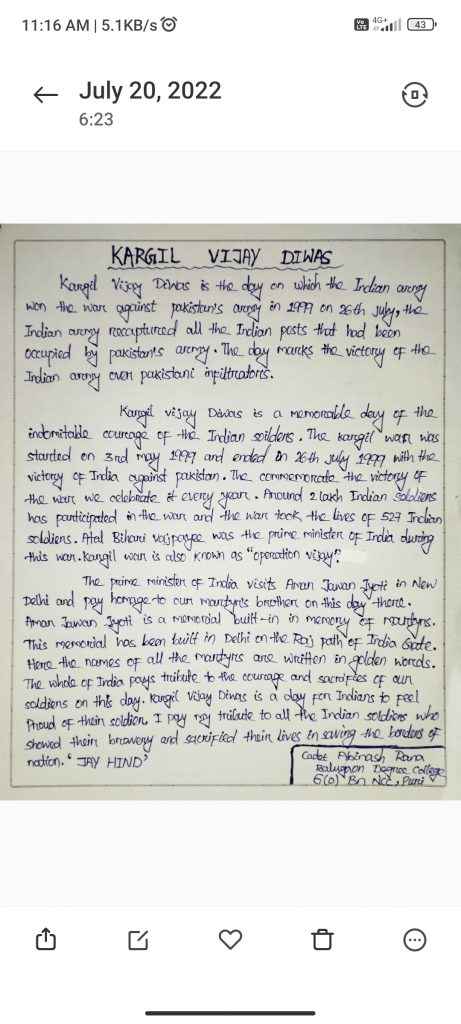 11:16 AM | 5.1KB/s
Vo LTE 4G+ 43
July 20, 2022
6:23
KARGIL VIJAY DIWAS
Kargil Vijay Diwas is the day on which the Indian army
won the war against pakistan's army in 1999 on 26th july, the
Indian army reccaptured all the Indian posts that had been
occupied by pakistan's army. The day marks the victory of the
Indian army over pakistani infiltrators.
Kargil vijay Diwas is a memorable day of the
indomitable courage of the Indian soilders. The kargil war was
started on 3rd may 1999 and ended in 26th july 1999 with the
victory of India against pakistan. The commemorate the victory of
the war we celebrate it every year. Around 2 lakh Indian soldiers
has participated in the war and the war took the lives of 527 Indian
soldiers. Atal Bihari vajpayee was the prime minister of India during
this war. Kargil war is also known as "operation vijay".
The prime minister of India visits Aman Jawan Jyoti in New
Delhi and pay homage to our martyrs brother on this day there.
Aman Jawan Jyoti is a memorial built-in in memory of martyrs.
This memorial has been built in Delhi on the Raj path of India Gate.
Here the names of all the martyrs are written in golden words.
The whole of India pays tribute to the courage and sacrifies of our
soldiers on this day. Kargil Vijay Diwas is a day for Indians to feel
Proud of their soldier. I pay my tribute to all the Indian soldiers who
showed their bravery and sacrified their lives in saving the borders of
nation. "JAY HIND"
Cadet Abinash Rana
Balugaon Degree College
6(O) Bn NCC, Puri